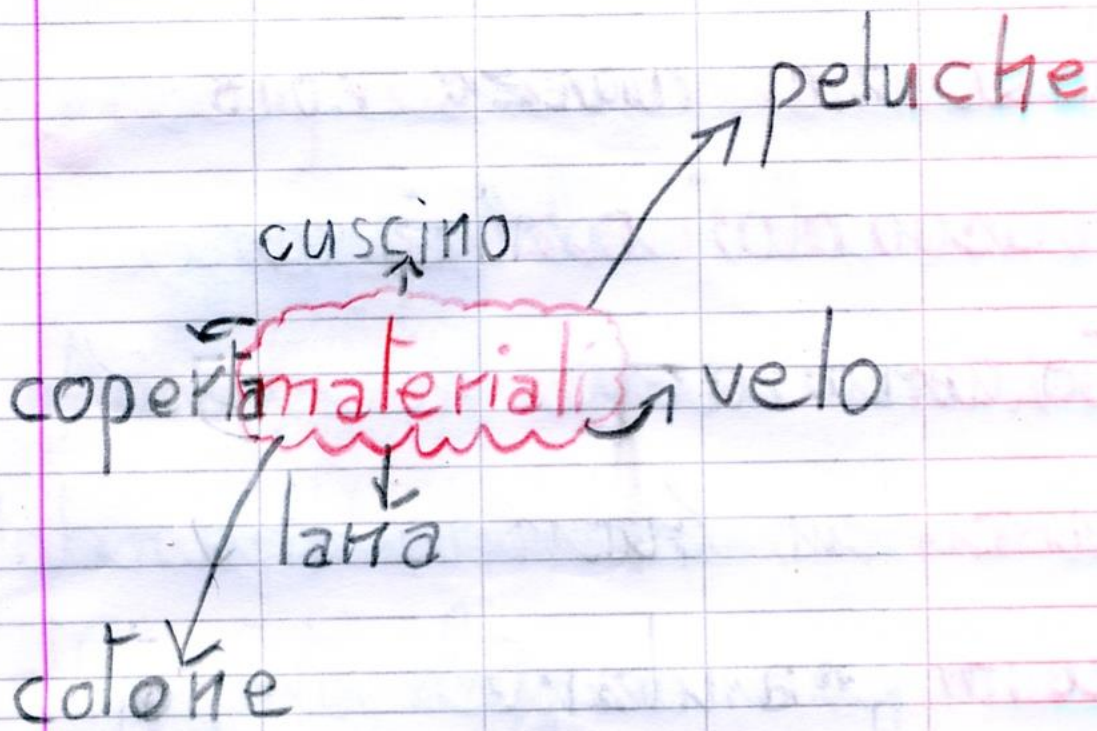 peluche
cuscino
coperta materiali velo
lana
cotone